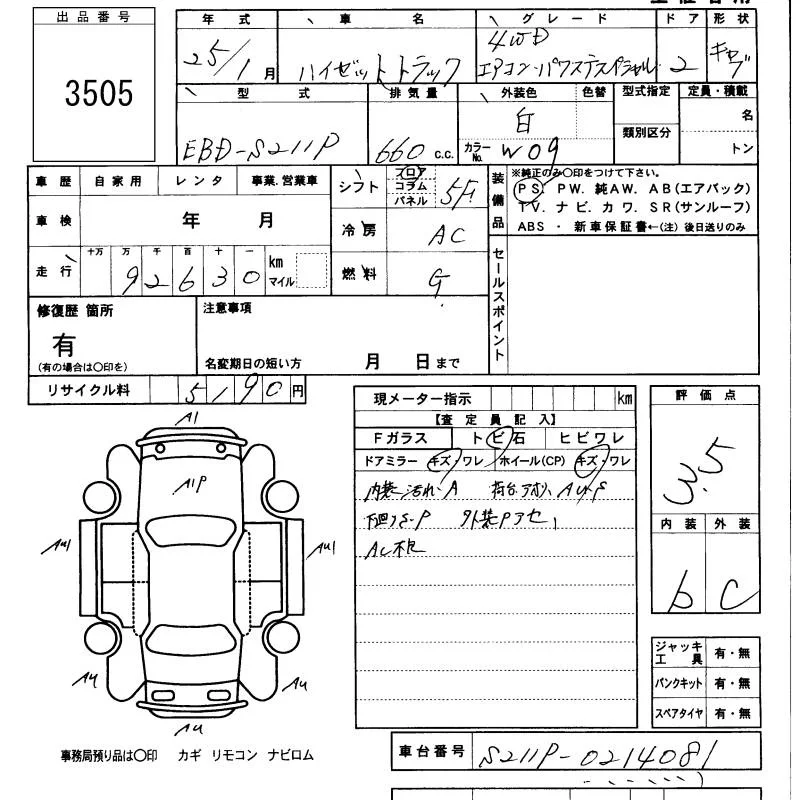 出品番号
3505
年式 車名 グレード ドア 形状
25/1月 ハイゼットトラック 4WD エアコン・パワステスペシャル 2 キャブ
型式 排気量 外装色 色替 型式指定 定員・積載
EBD-S211P 660 c.c. 白 名
カラーNo. W09 類別区分 トン
車歴 自家用 レンタ 事業.営業車
シフト フロア コラム パネル 5F
装備品
※純正のみ〇印をつけて下さい。
PS. PW. 純AW. AB(エアバック)
TV. ナビ. カワ. SR(サンルーフ)
ABS ・ 新車保証書←(注) 後日送りのみ
車検 年 月
冷房 AC
走行 十万 万 千 百 十 一
92630 km マイル
燃料 G
セールスポイント
修復歴 箇所
有
(有の場合は〇印を)
注意事項
名変期日の短い方 月 日まで
リサイクル料 5190円
現メーター指示 km
【査定員記入】
Fガラス トビ石 ヒビワレ
ドアミラー キズ・ワレ ホイール(CP) キズ・ワレ
内装汚れ・A 荷台アオリ,
下回りS・P
AC不良
評価点
3.5
内装 外装
b C
A1
A1P
AU1
AU1
AU
AU
AU
ジャッキ工具 有・無
パンクキット 有・無
スペアタイヤ 有・無
事務局預り品は〇印 カギ リモコン ナビロム
車台番号 S211P-0214081